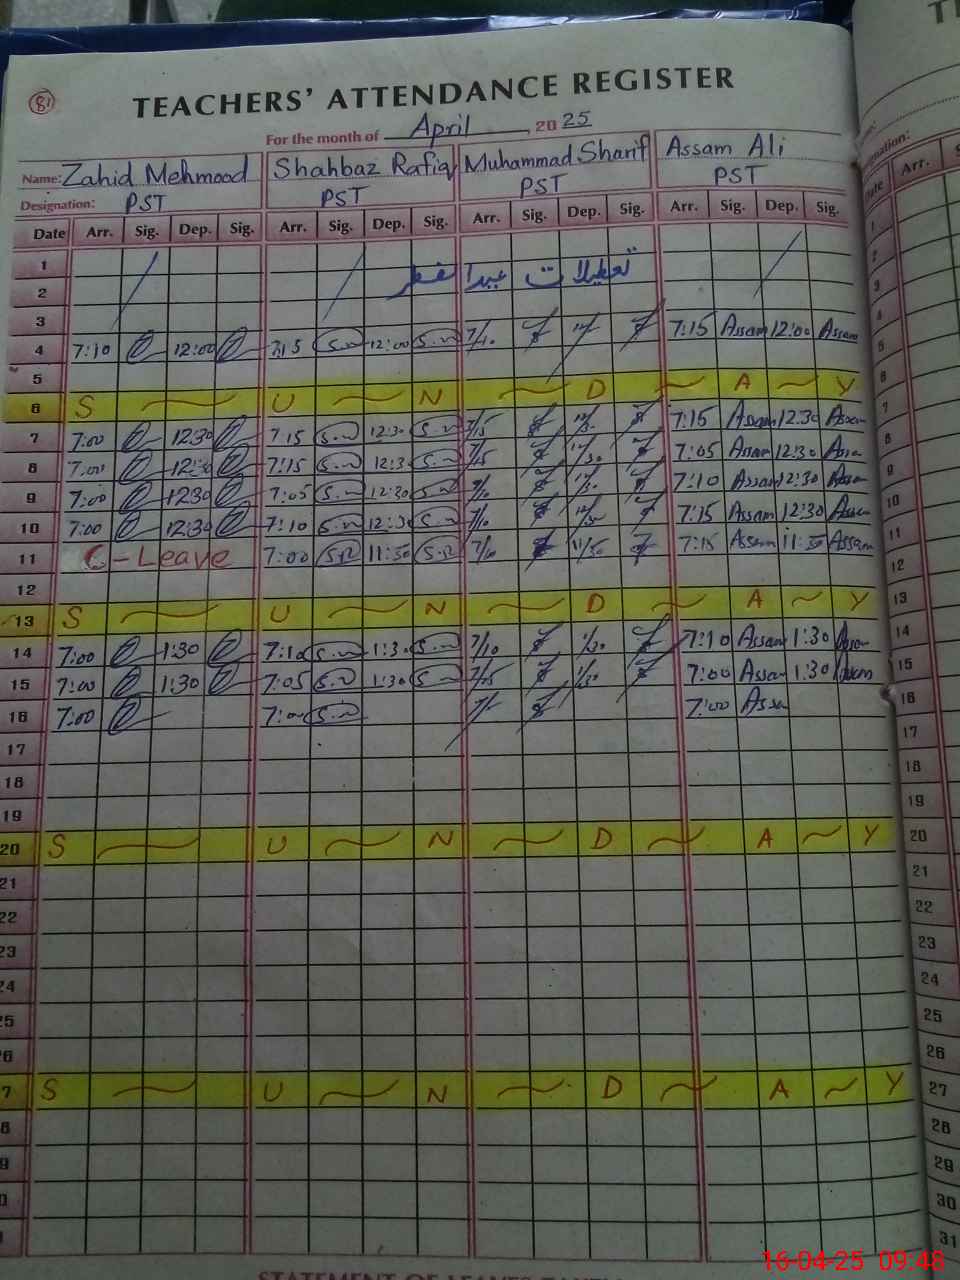 81
TEACHERS' ATTENDANCE REGISTER
For the month of April, 2025
Name: Zahid Mehmood Shahbaz Rafiq Muhammad Sharif Assam Ali
Designation: PST PST PST PST
Date Arr. Sig. Dep. Sig. Arr. Sig. Dep. Sig. Arr. Sig. Dep. Sig. Arr. Sig. Dep. Sig.
1
تعطیلات عیدالفطر
2
3
4 7:10 12:00 7:15 S.R 12:00 S.R 7/10 12/ 7:15 Assam 12:00 Assam
5
6 S U N D A Y
7 7:00 12:30 7:15 S.R 12:30 S.R 7/15 12/30 7:15 Assam 12:30 Assam
8 7:00 12:30 7:15 S.R 12:30 S.R 7/15 12/30 7:05 Assam 12:30 Assam
9 7:00 12:30 7:05 S.R 12:30 S.R 7/10 12/30 7:10 Assam 12:30 Assam
10 7:00 12:30 7:10 S.R 12:30 S.R 7/10 12/30 7:15 Assam 12:30 Assam
11 C-Leave 7:00 S.R 11:30 S.R 7/10 11/30 7:15 Assam 11:30 Assam
12
13 S U N D A Y
14 7:00 1:30 7:10 S.R 1:30 S.R 7/10 1/30 7:10 Assam 1:30 Assam
15 7:00 1:30 7:05 S.R 1:30 S.R 7/05 1/30 7:00 Assam 1:30 Assam
16 7:00 7:00 S.R 7/ 7:00 Assam
17
18
19
20 S U N D A Y
21
22
23
24
25
26
27 S U N D A Y
28
29
30
31
16-04-25 09:48